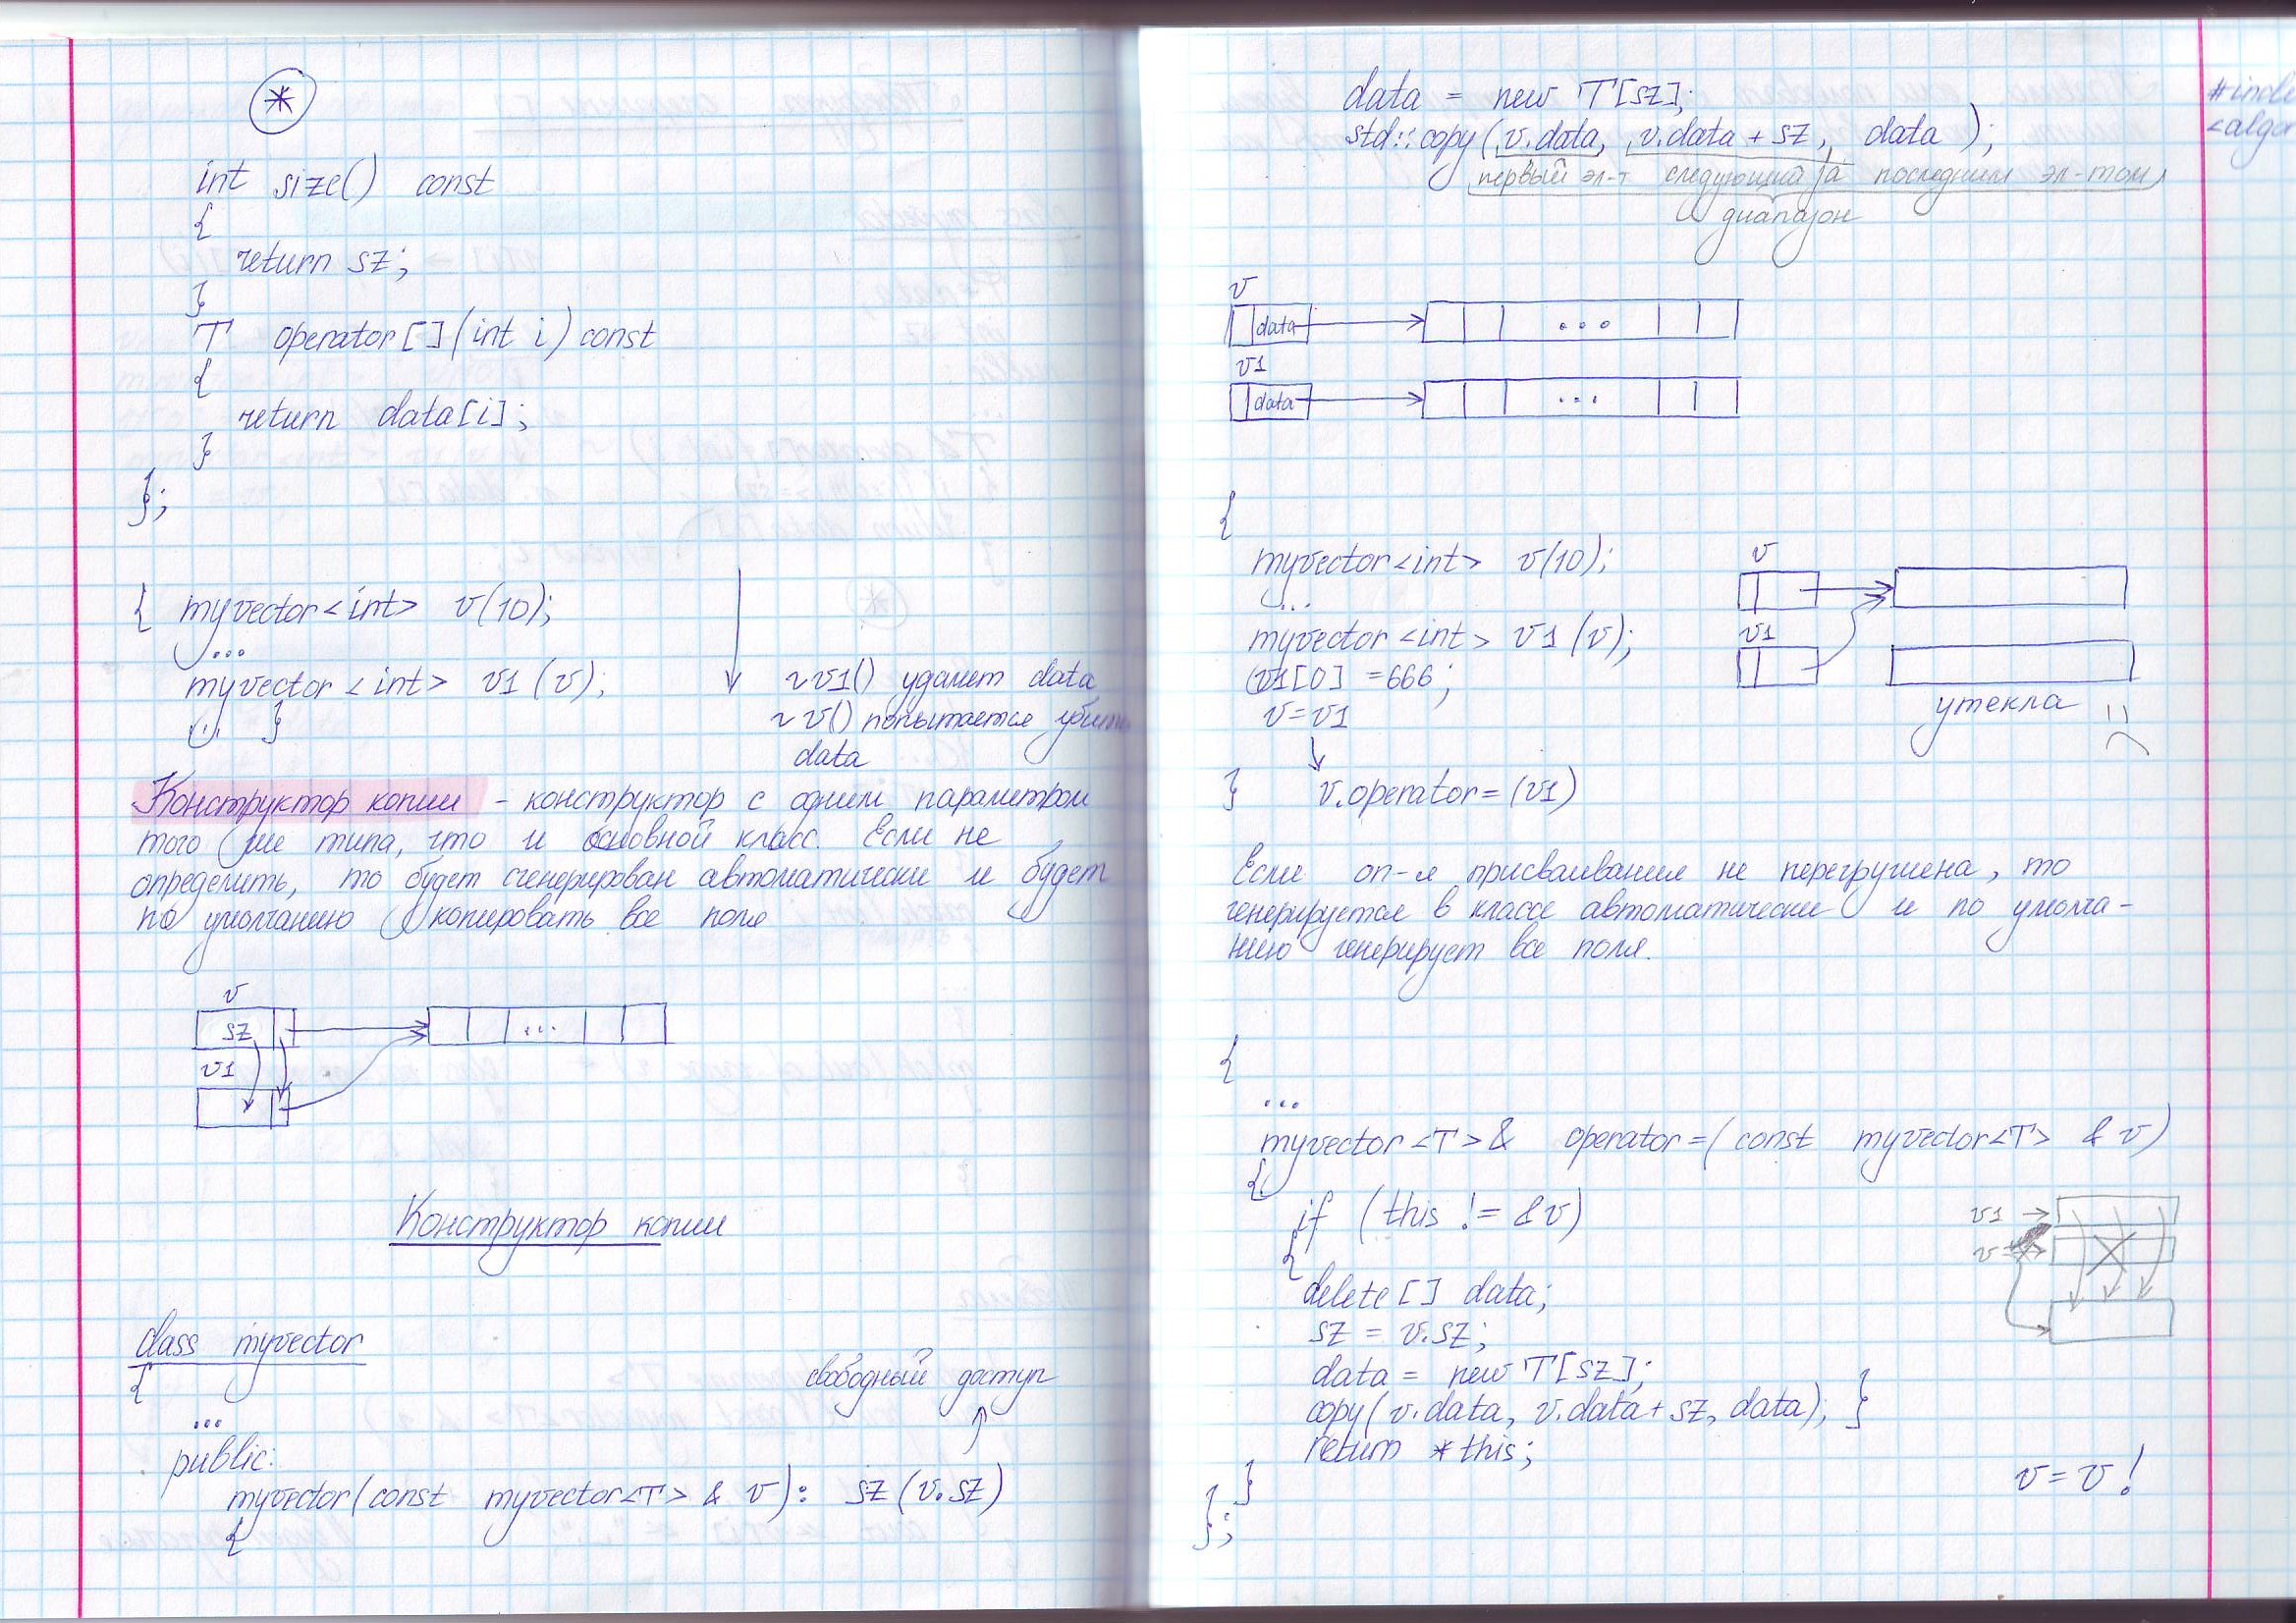 *
int size() const
{
return sz;
}
T operator[](int i) const
{
return data[i];
}
};
{ myvector<int> v(10);
...
myvector <int> v1 (v);
... }
~v1() удалит data
~v() попытается убить
data
Конструктор копии - конструктор с одним параметром
того же типа, что и основной класс. Если не
определить, то будет сгенерирован автоматически и будет
по умолчанию копировать все поля
v
sz
...
v1
Конструктор копии
class myvector
{
свободный доступ
...
public:
myvector(const myvector<T> & v): sz (v.sz)
{
data = new T[sz];
std::copy(v.data, v.data + sz, data );
первый эл-т следующий за последним эл-том
диапазон
#inclu
<algor
v
data
...
v1
data
...
{
myvector<int> v(10);
...
myvector <int> v1 (v);
v1[0] =666;
v=v1
} v.operator=(v1)
v
v1
утекла
Если оп-я присваивания не перегружена, то
генерируется в классе автоматически и по умолча-
нию генерирует все поля.
{
...
myvector <T>& operator=(const myvector<T> & v)
{
if (this != &v)
{
delete[] data;
sz = v.sz;
data = new T[sz];
copy(v.data, v.data+sz, data); }
return *this;
}
};
v1
v
v = v!